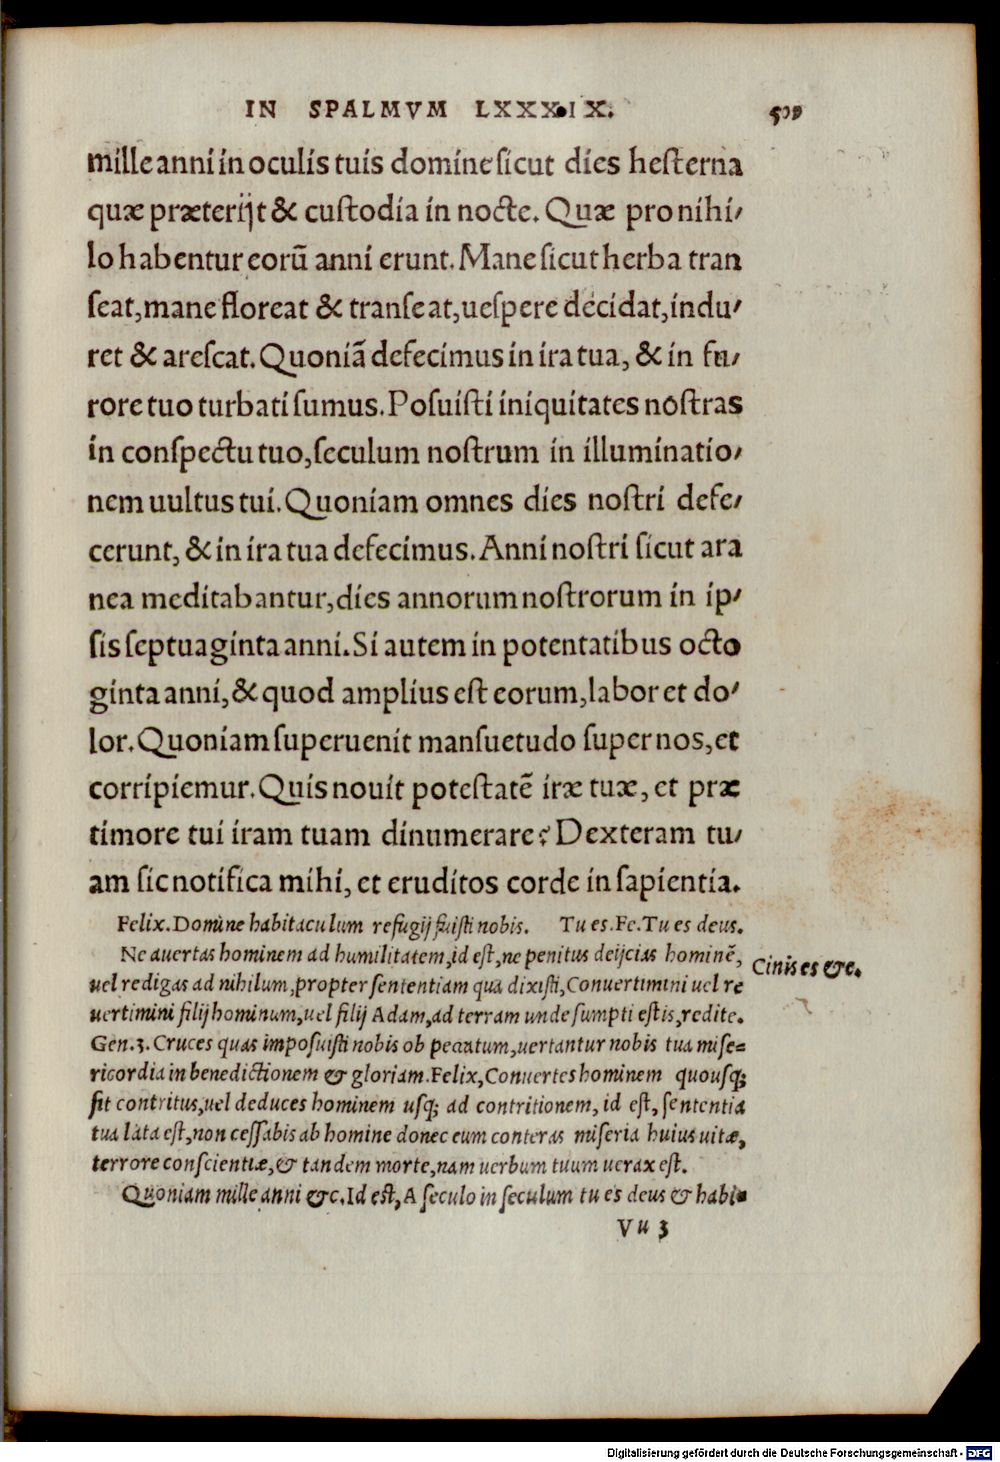 IN SPALMVM LXXXIX.
mille anni in oculis tuis domine sicut dies hesterna
quæ præterijt & custodia in nocte. Quæ pro nihi/
lo habentur eorū anni erunt. Mane sicut herba tran
seat, mane floreat & transeat, uespere decidat, indu/
ret & arescat. Quoniā defecimus in ira tua, & in fu/
rore tuo turbati sumus. Posuisti iniquitates nostras
in conspectu tuo, seculum nostrum in illuminatio/
nem uultus tui. Quoniam omnes dies nostri defe/
cerunt, & in ira tua defecimus. Anni nostri sicut ara
nea meditabantur, dies annorum nostrorum in ip/
sis septuaginta anni. Si autem in potentatibus octo
ginta anni, & quod amplius est eorum, labor et do/
lor. Quoniam superuenit mansuetudo super nos, et
corripiemur. Quis nouit potestatē iræ tuæ, et præ
timore tui iram tuam dinumerare? Dexteram tu/
am sic notifica mihi, et eruditos corde in sapientia.
Felix. Domine habitaculum refugij fuisti nobis. Tu es. Fe. Tu es deus.
Ne auertas hominem ad humilitatem, id est, ne penitus deijcias hominē,
Cinis es &c.
uel redigas ad nihilum, propter sententiam qua dixisti, Conuertimini uel re
uertimini filij hominum, uel filij Adam, ad terram unde sumpti estis, redite.
Gen. 3. Cruces quas imposuisti nobis ob peccatum, uertantur nobis tua mise=
ricordia in benedictionem & gloriam. Felix, Conuertes hominem quousq;
sit contritus, uel deduces hominem usq; ad contritionem, id est, sententia
tua lata est, non cessabis ab homine donec eum conteras miseria huius uitæ,
terrore conscientiæ, & tandem morte, nam uerbum tuum uerax est.
Quoniam mille anni &c. Id est, A seculo in seculum tu es deus & habi=
Vu 3
Digitalisierung gefördert durch die Deutsche Forschungsgemeinschaft - DFG